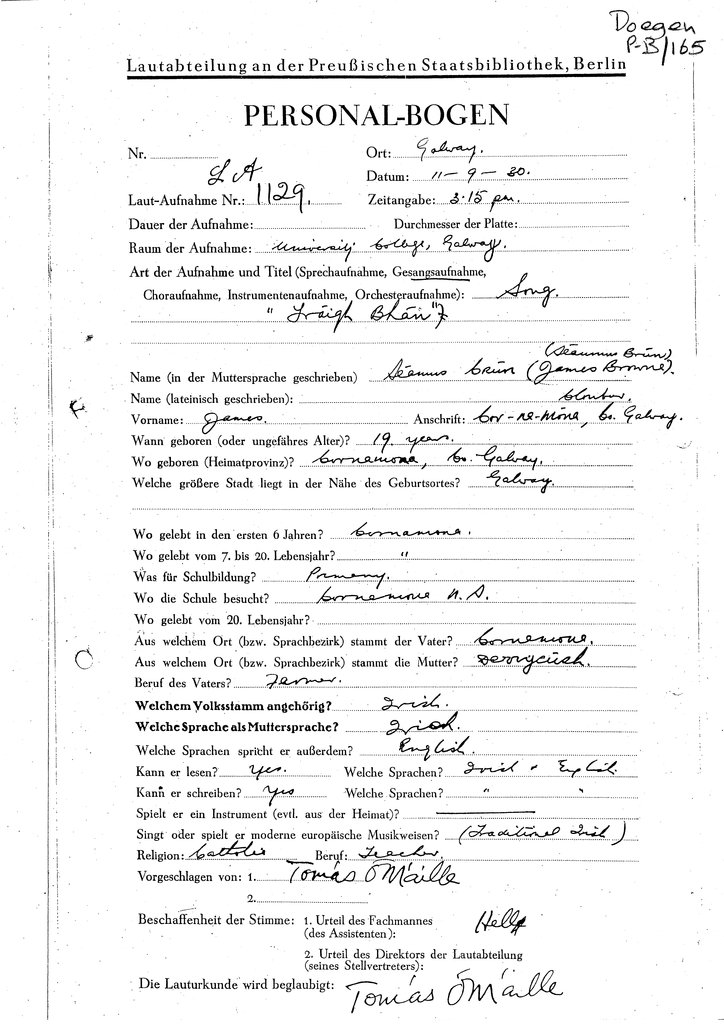 Doegen
P-B/165
Lautabteilung an der Preußischen Staatsbibliothek, Berlin
PERSONAL-BOGEN
Nr. Ort: Galway.
LA Datum: 11-9-30.
Laut-Aufnahme Nr.: 1129. Zeitangabe: 3.15 pm.
Dauer der Aufnahme: Durchmesser der Platte:
Raum der Aufnahme: University College, Galway.
Art der Aufnahme und Titel (Sprechaufnahme, Gesangsaufnahme,
Choraufnahme, Instrumentenaufnahme, Orchesteraufnahme): Song.
" Tráigh Bháin "
(Séamus Brún)
Name (in der Muttersprache geschrieben) Séamus Brún (James Browne).
Name (lateinisch geschrieben): Clonbur.
Vorname: James. Anschrift: Cor-na-móna, Co. Galway.
Wann geboren (oder ungefähres Alter)? 19 years.
Wo geboren (Heimatprovinz)? Cornamona, Co. Galway.
Welche größere Stadt liegt in der Nähe des Geburtsortes? Galway.
Wo gelebt in den ersten 6 Jahren? Cornamona.
Wo gelebt vom 7. bis 20. Lebensjahr? "
Was für Schulbildung? Primary.
Wo die Schule besucht? Cornamona N.S.
Wo gelebt vom 20. Lebensjahr?
Aus welchem Ort (bzw. Sprachbezirk) stammt der Vater? Cornamona.
Aus welchem Ort (bzw. Sprachbezirk) stammt die Mutter? Derrycush.
Beruf des Vaters? Farmer.
Welchem Volksstamm angehörig? Irish.
Welche Sprache als Muttersprache? Irish.
Welche Sprachen spricht er außerdem? English.
Kann er lesen? Yes. Welche Sprachen? Irish & English.
Kann er schreiben? Yes Welche Sprachen? " "
Spielt er ein Instrument (evtl. aus der Heimat)?
Singt oder spielt er moderne europäische Musikweisen? (Traditional Irish)
Religion: Catholic Beruf: Teacher.
Vorgeschlagen von: 1. Tomás Ó Máille
2.
Beschaffenheit der Stimme: 1. Urteil des Fachmannes
(des Assistenten): Hell
2. Urteil des Direktors der Lautabteilung
(seines Stellvertreters):
Die Lauturkunde wird beglaubigt: Tomás Ó Máille